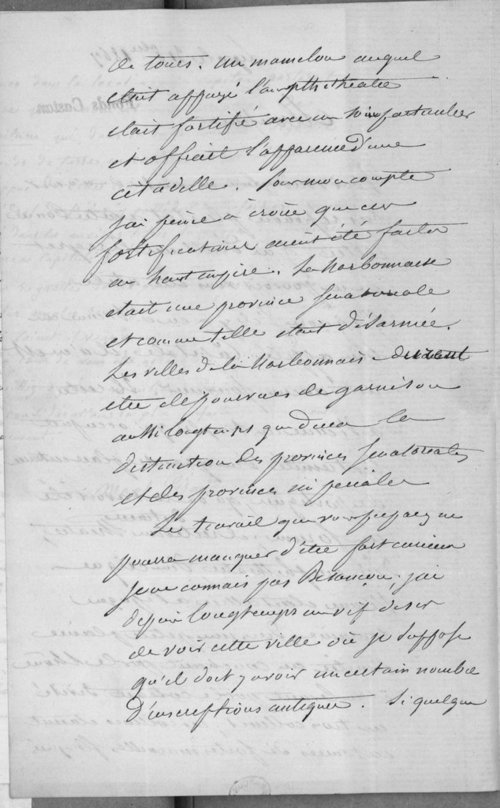 de tours. un mamelon auquel
était appuyé l'amphithéatre
était fortifié avec un soin particulier
et offrait l'apparence d'une
citadelle. Pour mon compte
j'ai peine à croire que ces
fortifications aient été faites
au haut empire. La Narbonnaise
était une province senatoriale
et comme telle était désarmée.
Les villes de la Narbonnaise durent
être dépourvues de garnison
aussi longtemps que dura la
distinction des provinces senatoriales
et des provinces impériales
Le travail que vous préparez ne
pourra manquer d'être fort curieux
je ne connais pas Besançon; j'ai
depuis longtemps un vif desir
de voir cette ville où je suppose
qu'il doit y avoir un certain nombre
d'inscriptions antiques. Si quelque